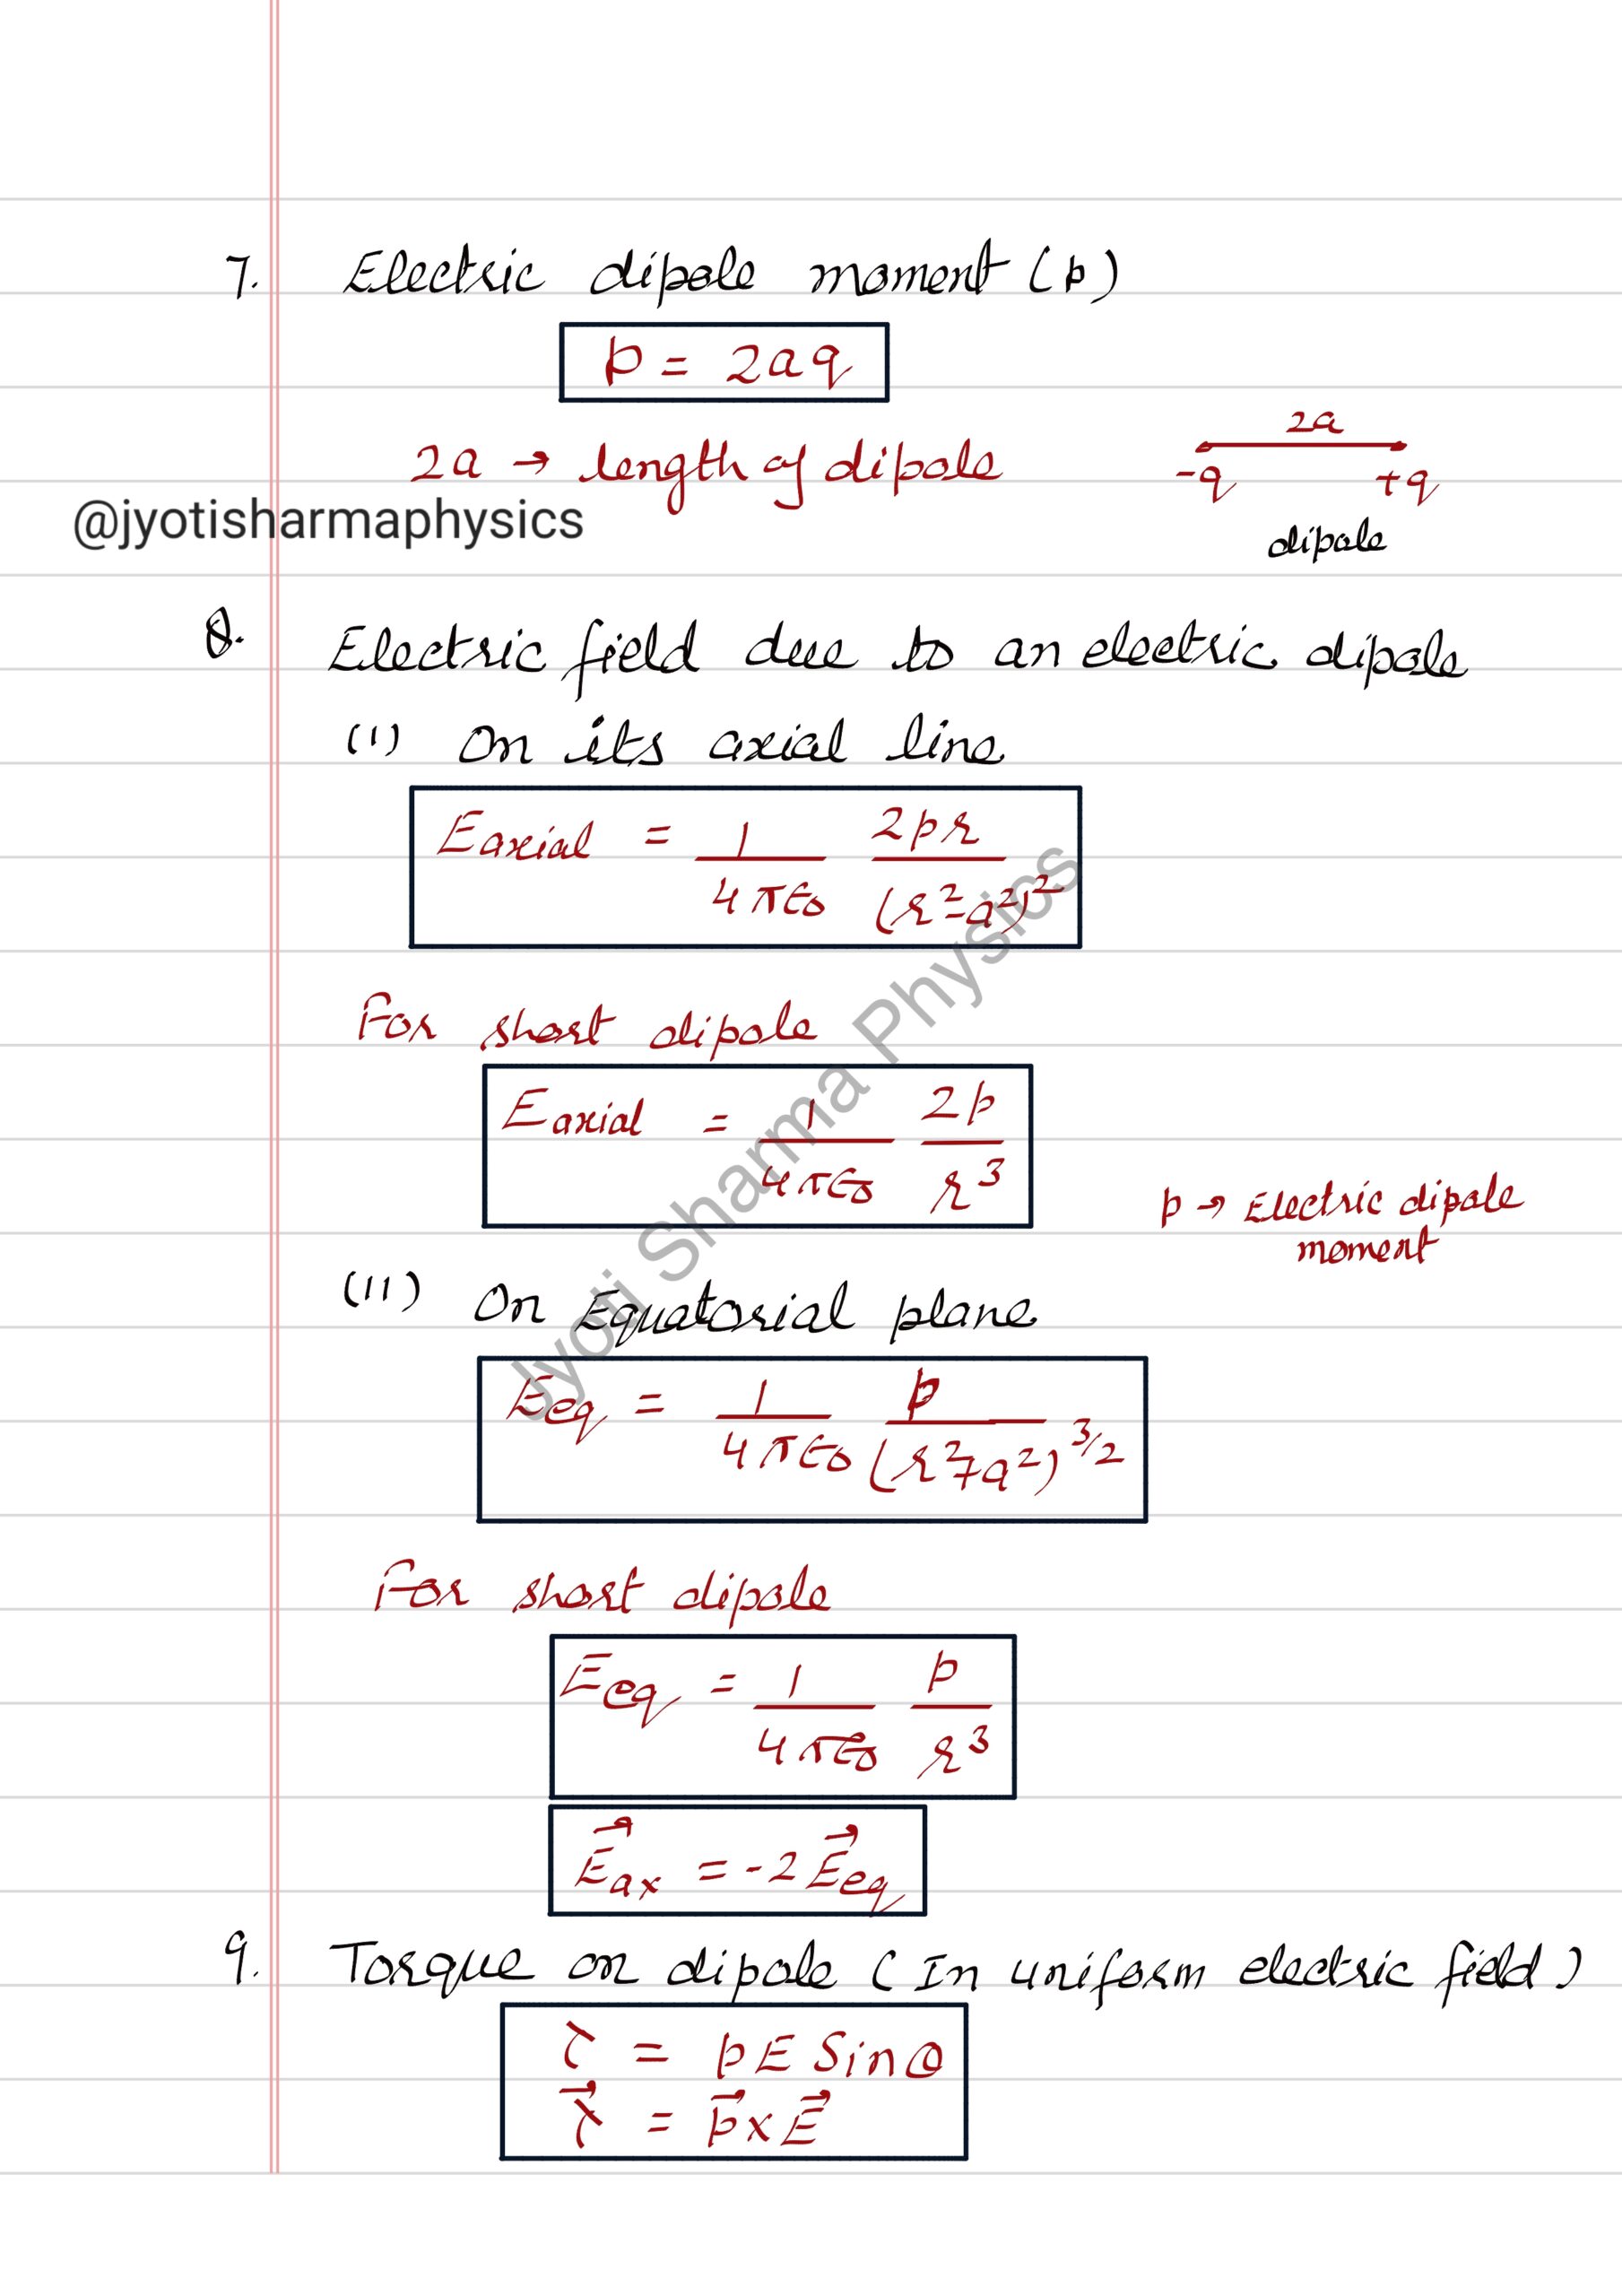 7. Electric dipole moment (p)
p = 2aq
2a → length of dipole
2a
-q +q
dipole
@jyotisharmaphysics
8. Electric field due to an electric dipole
(i) On its axial line
Eaxial = 1/4πϵ₀ 2pr/(r²-a²)²
For short dipole
Eaxial = 1/4πϵ₀ 2p/r³
p → Electric dipole
moment
(ii) On Equatorial plane
Eeq = 1/4πϵ₀ p/(r²+a²)^3/2
For short dipole
Eeq = 1/4πϵ₀ p/r³
E⃗ax = -2E⃗eq
9. Torque on dipole (In uniform electric field)
τ = pE Sinθ
τ⃗ = p⃗ x E⃗
Jyoti Sharma Physics